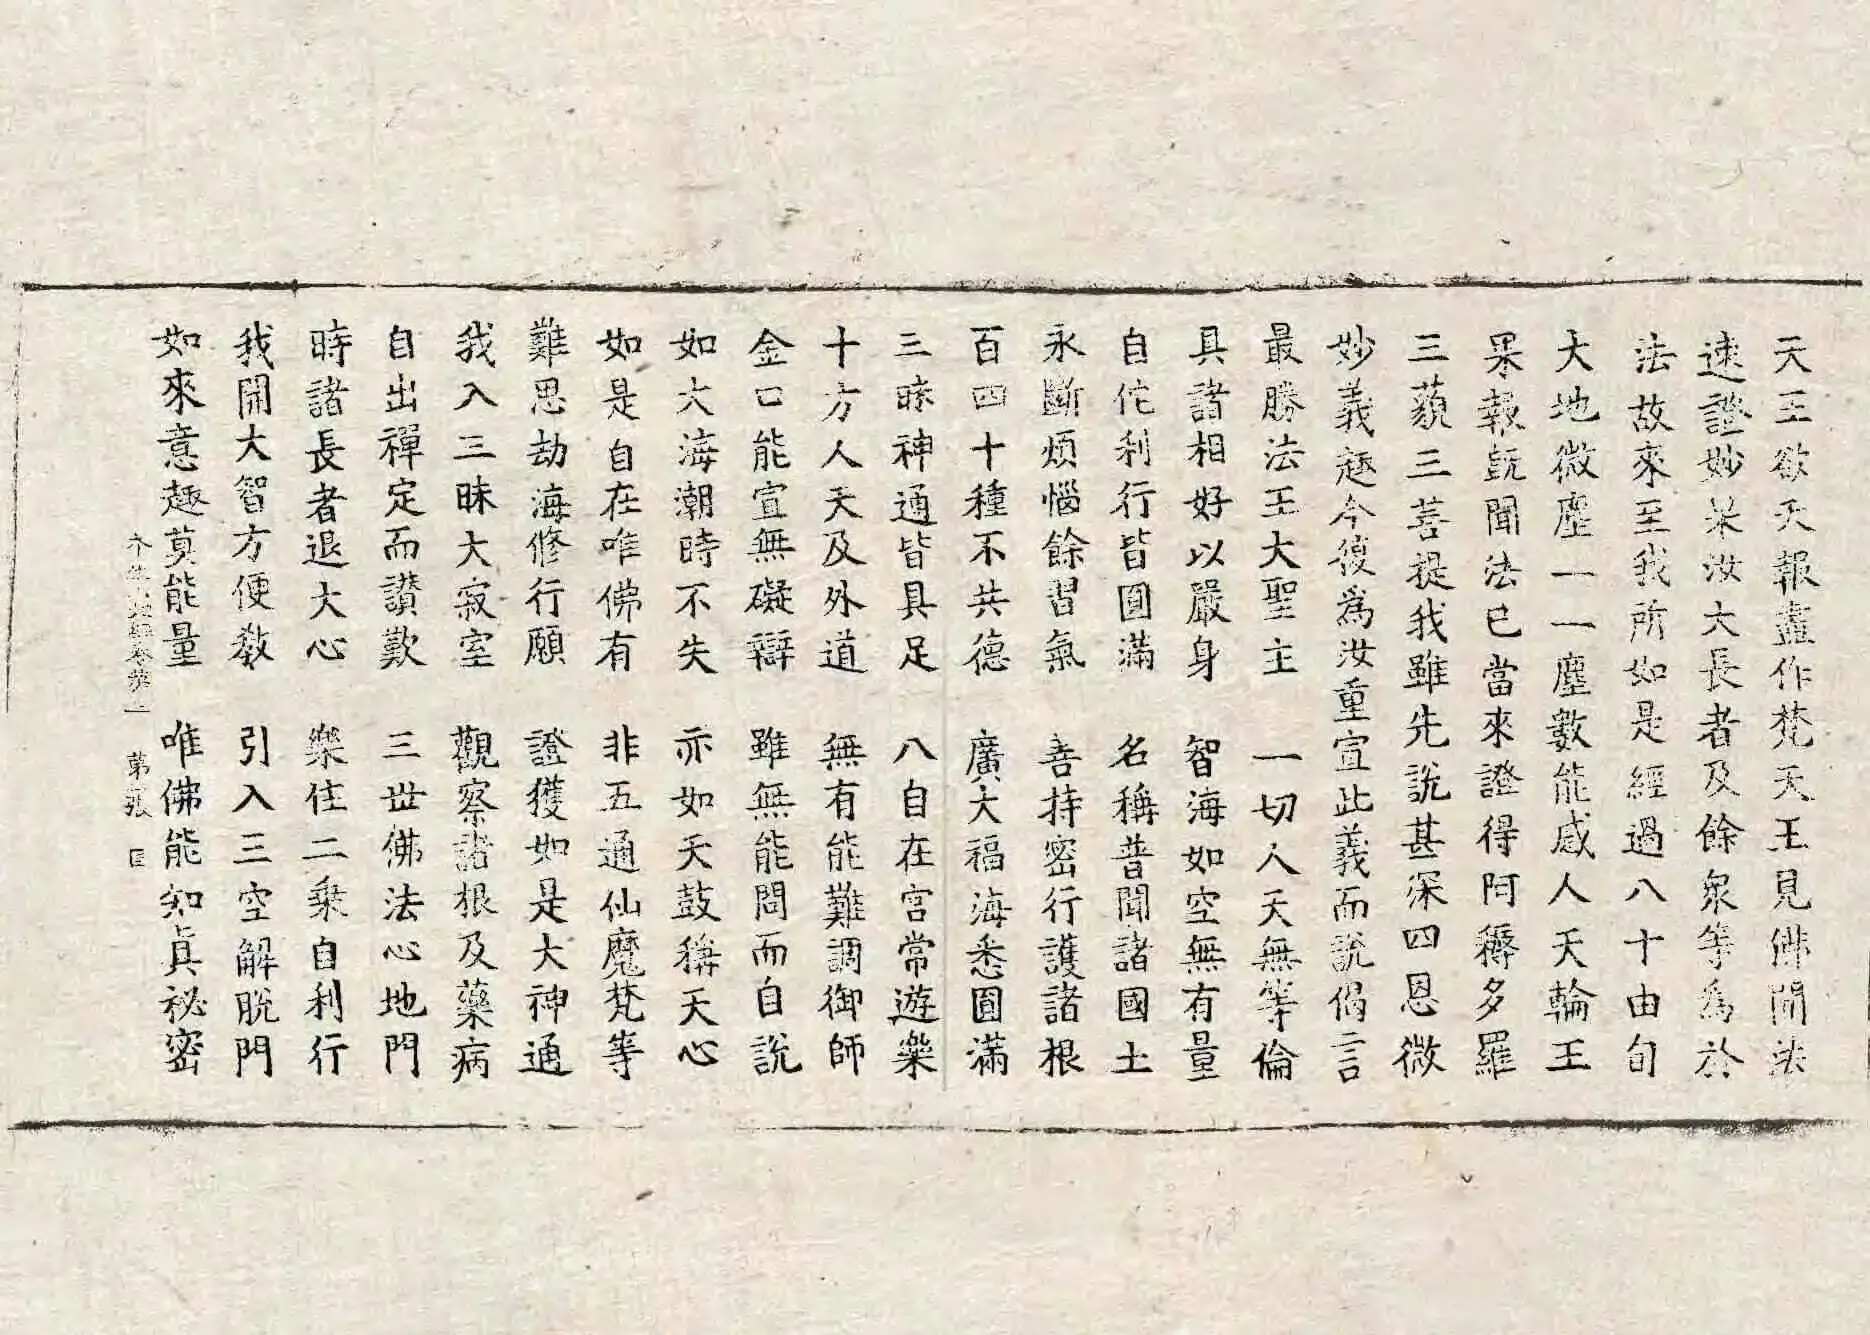 天王欲天報盡作梵天王見佛聞法
速證妙果汝大長者及餘衆等為於
法故來至我所如是經過八十由旬
大地微塵一一塵數能感人天輪王
果報旣聞法已當來證得阿耨多羅
三藐三菩提我雖先說甚深四恩微
妙義趣今復為汝重宣此義而說偈言
最勝法王大聖主　一切人天無等倫
具諸相好以嚴身　智海如空無有量
自佗利行皆圓滿　名稱普聞諸國土
永斷煩惱餘習氣　善持密行護諸根
百四十種不共德　廣大福海悉圓滿
三昧神通皆具足　八自在宮常遊樂
十方人天及外道　無有能難調御師
金口能宣無礙辯　雖無能問而自說
如大海潮時不失　亦如天鼓稱天心
如是自在唯佛有　非五通仙魔梵等
難思劫海修行願　證獲如是大神通
我入三昧大寂室　觀察諸根及藥病
自出禪定而讃歎　三世佛法心地門
時諸長者退大心　樂住二乗自利行
我開大智方便教　引入三空解脫門
如來意趣莫能量　唯佛能知眞祕密